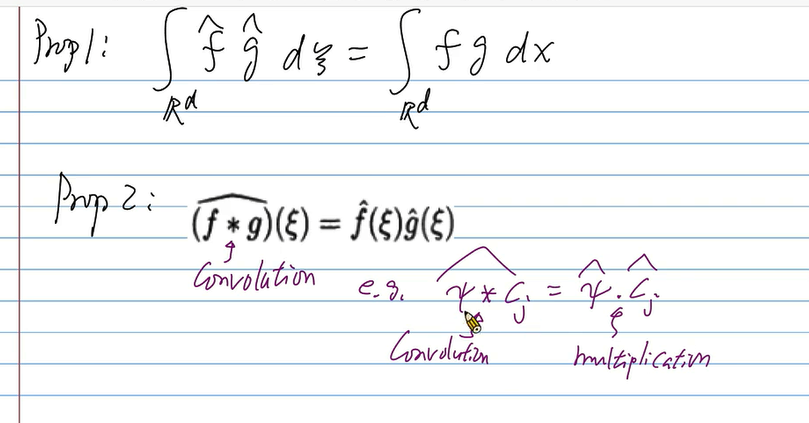 Prop 1: ∫_{ℝ^d} f̂ ĝ dξ = ∫_{ℝ^d} f g dx
Prop 2: \widehat{(f * g)}(ξ) = f̂(ξ)ĝ(ξ)
Convolution e.g. \widehat{ψ * C_j} = ψ̂ · Ĉ_j
Convolution multiplication